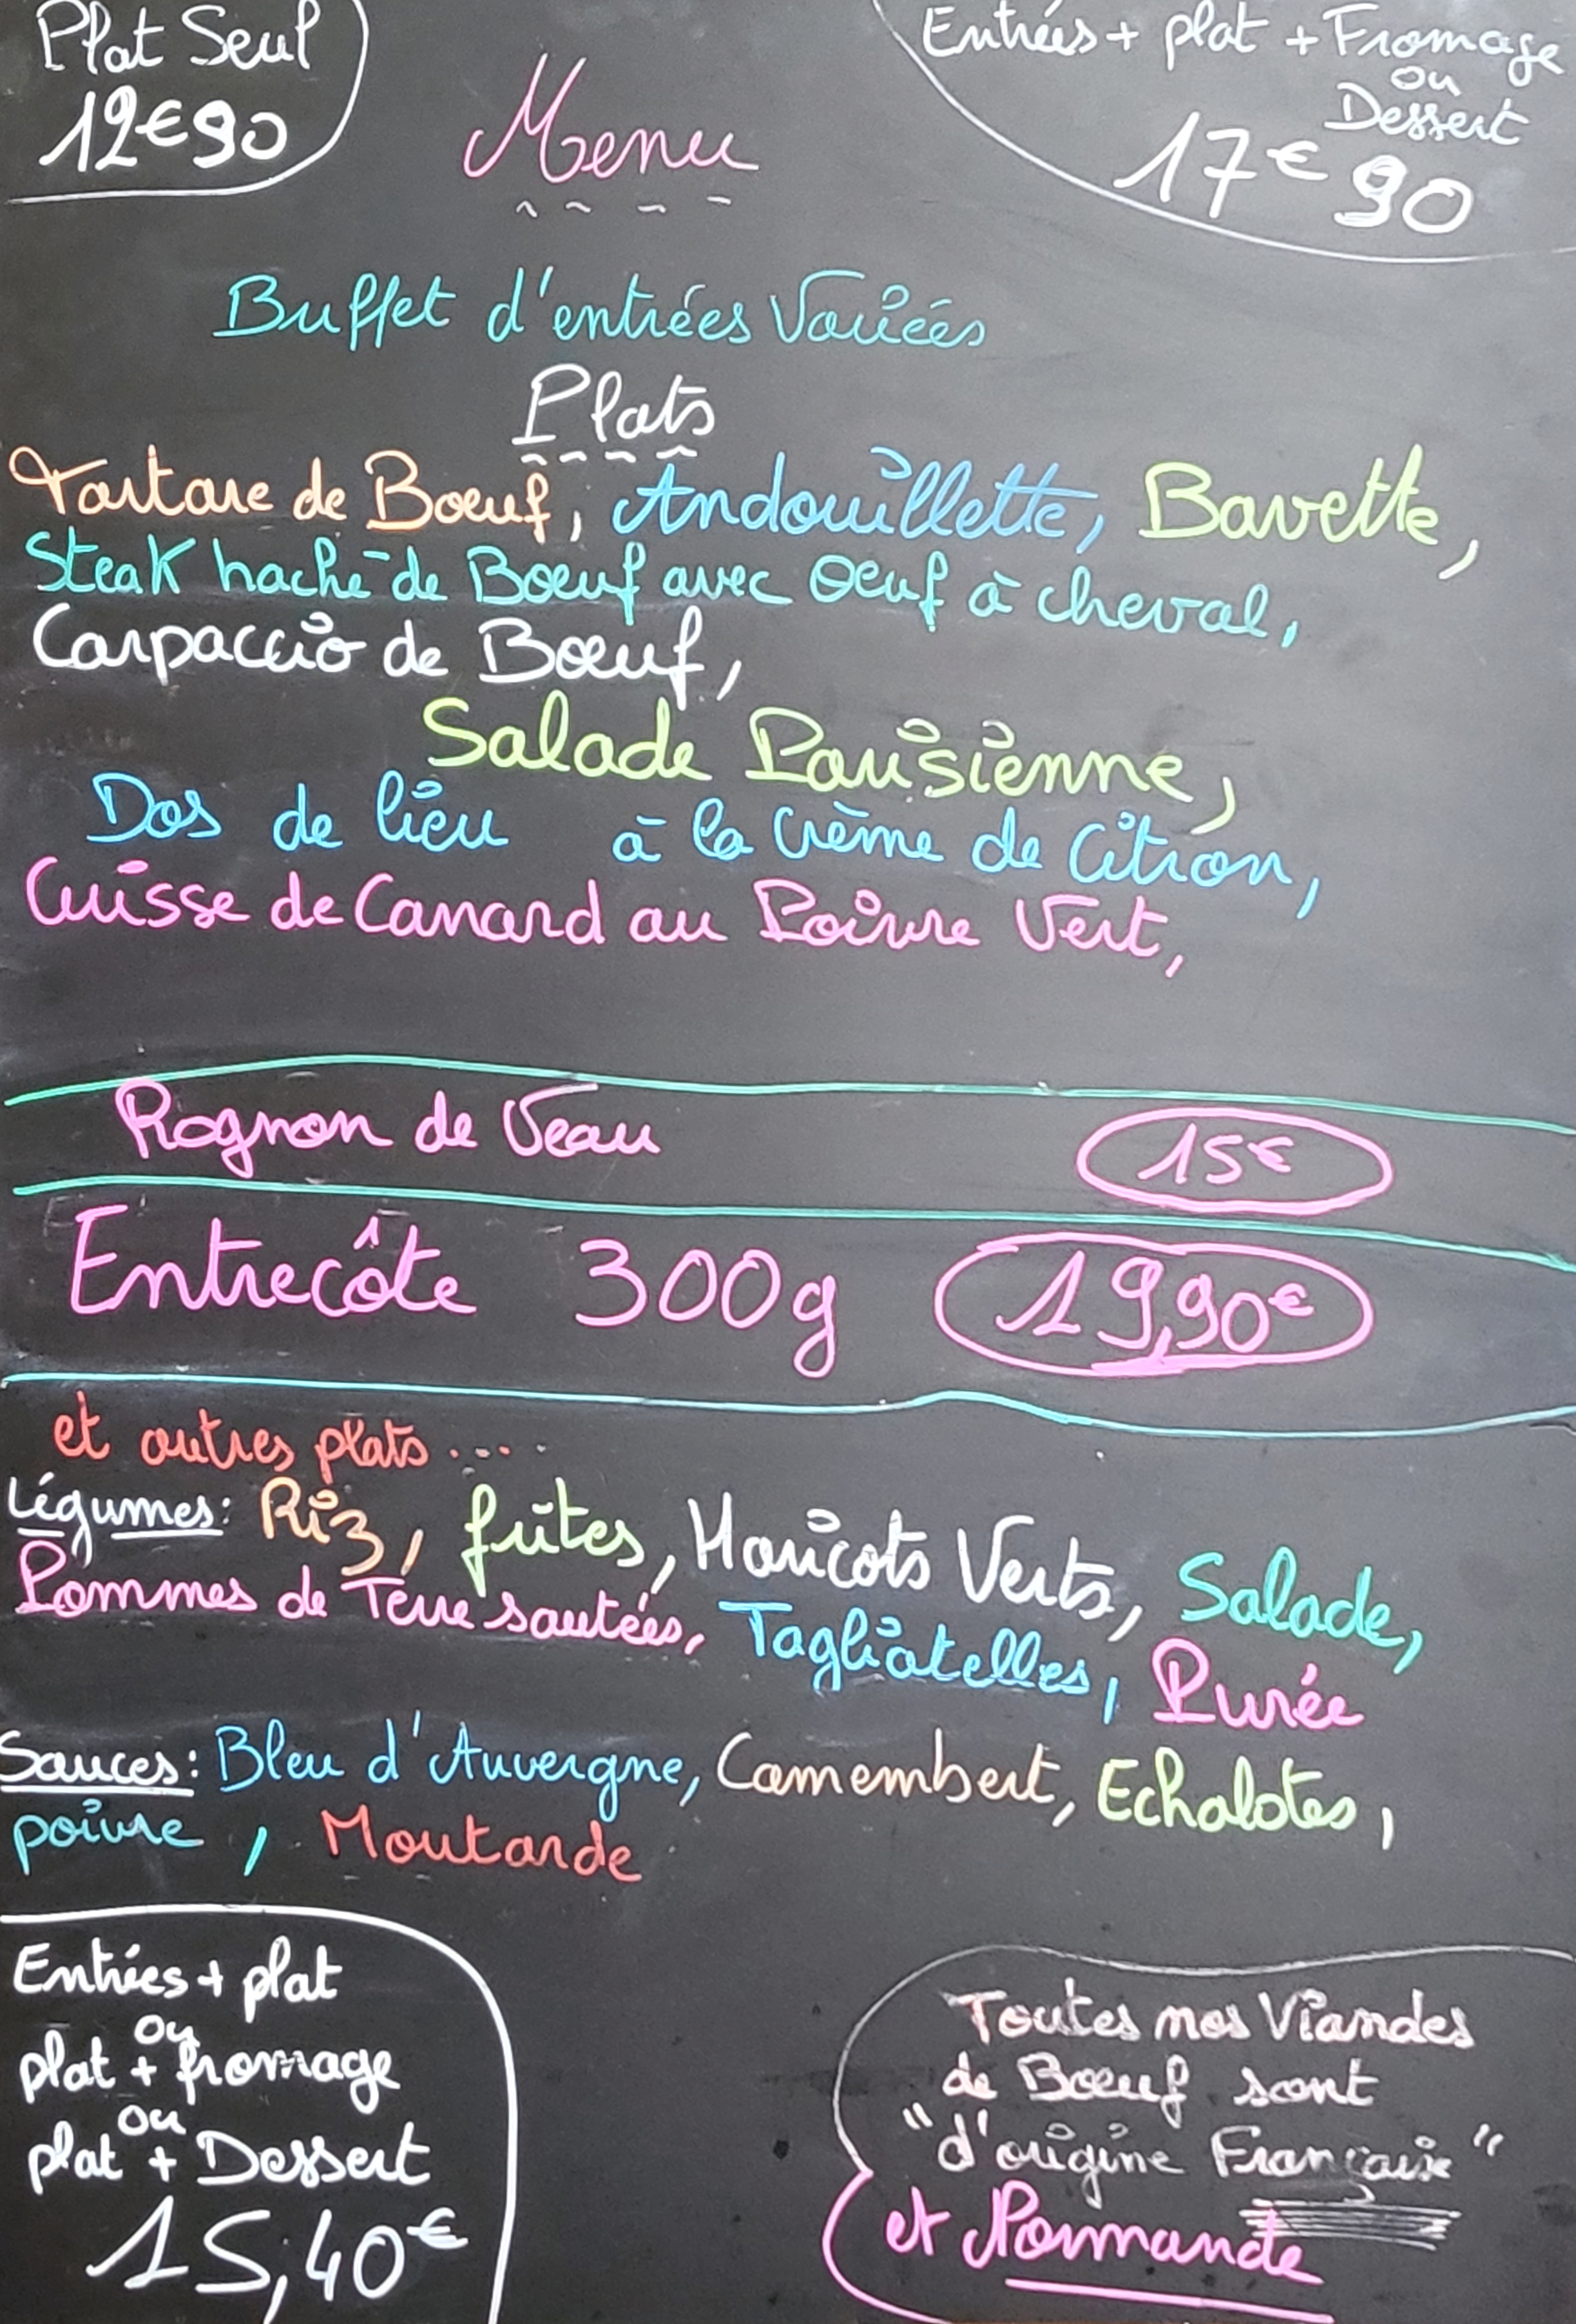 Plat Seul
12€90
Entrées + plat + Fromage
ou
Dessert
17€90
Menu
Buffet d'entrées Variées
Plats
Tartare de Boeuf, Andouillette, Bavette,
Steak haché de Boeuf avec Oeuf à cheval,
Carpaccio de Boeuf,
Salade Parisienne,
Dos de lieu à la Crème de Citron,
Cuisse de Canard au Poivre Vert,
Rognon de Veau 15€
Entrecôte 300g 19,90€
et autres plats.....
Légumes: Riz, frites, Haricots Verts, Salade,
Pommes de Terre sautées, Tagliatelles, Purée
Sauces: Bleu d'Auvergne, Camembert, Echalotes,
poivre, Moutarde
Entrées + plat
ou
plat + fromage
ou
plat + Dessert
15,40€
Toutes nos Viandes
de Boeuf sont
"d'origine Française"
et Normande